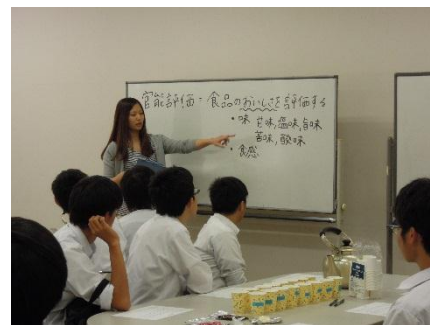 官能評価・食品のおいしさを評価する
・味 甘味,塩味,旨味
苦味,酸味
・食感